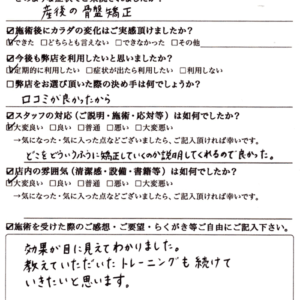 産後の骨盤矯正
☑施術後にカラダの変化はご実感頂けましたか?
☑できた □どちらとも言えない □できなかった □その他
☑今後も弊店を利用したいと思いましたか?
☑定期的に利用したい □症状が出たら利用したい □利用しない
□弊店をお選び頂いた際の決め手は何でしょうか?
口コミが良かったから
☑スタッフの対応(ご説明・施術・応対等)は如何でしたか?
☑大変良い □良い □普通 □悪い □大変悪い
→気になった・気に入った点などございましたら、ご記入頂ければ幸いです。
どこをどういうふうに矯正していくのか説明してくれるので良かった。
☑店内の雰囲気(清潔感・設備・書籍等)は如何でしたか?
☑大変良い □良い □普通 □悪い □大変悪い
→気になった・気に入った点などございましたら、ご記入頂ければ幸いです。
☑施術を受けた際のご感想・ご要望・らくがき等ご自由にご記入下さい。
効果が目に見えてわかりました。
教えていただいたトレーニングも続けて
いきたいと思います。